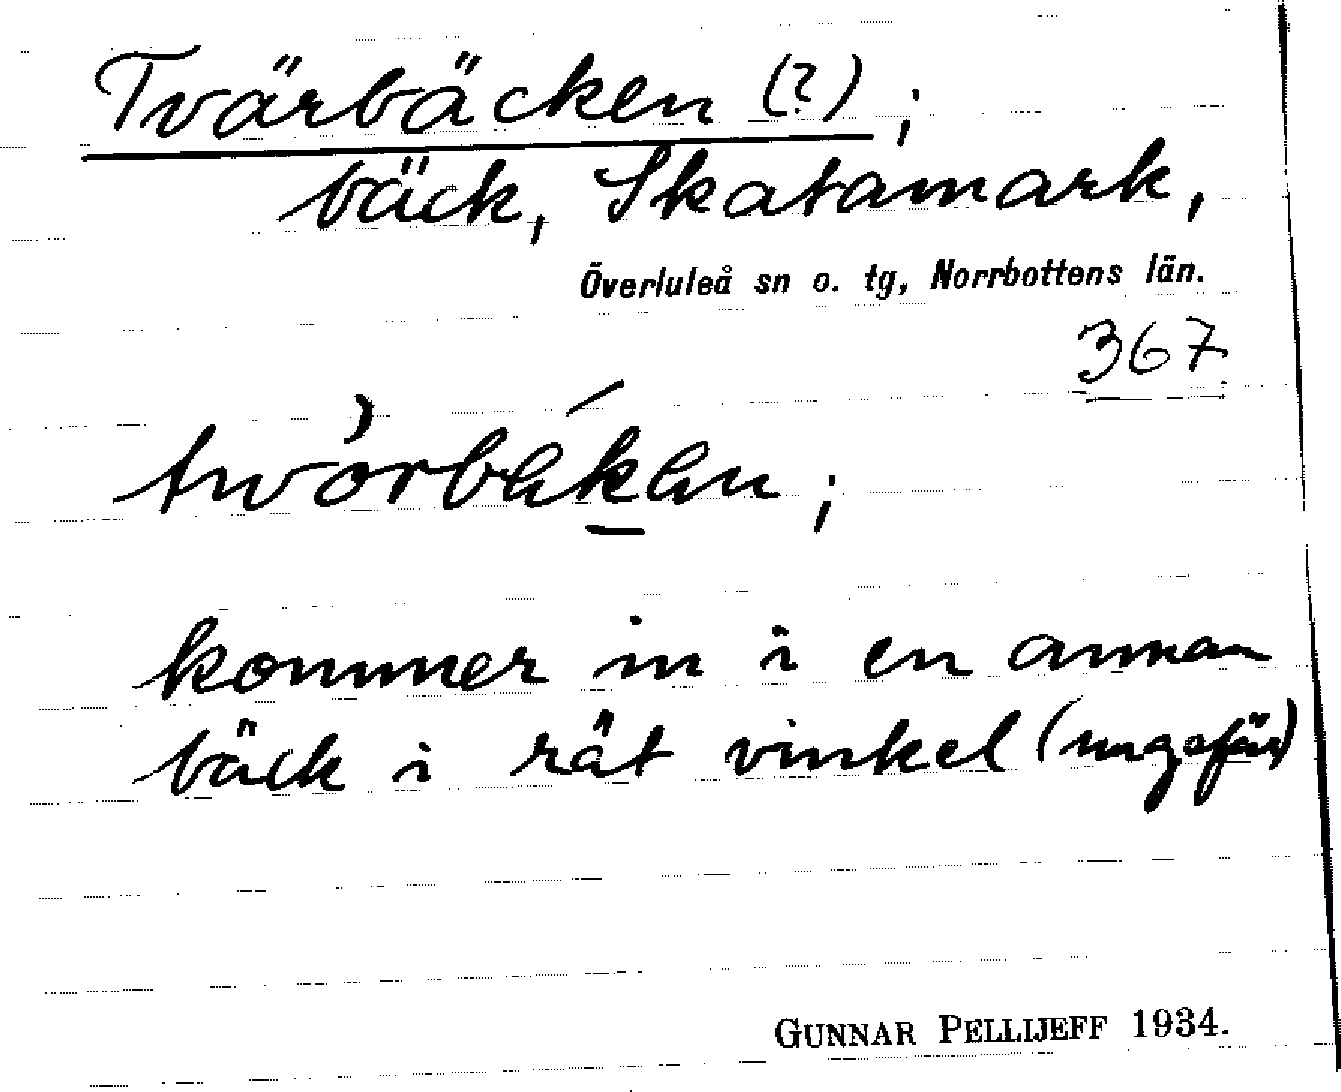 Tvärbäcken (?);
bäck, Skatamark,
Överluleå sn o. tg, Norrbottens län.
367
kommer in i en annan
bäck i rät vinkel (ungefär)
GUNNAR PELLIJEFF 1934.